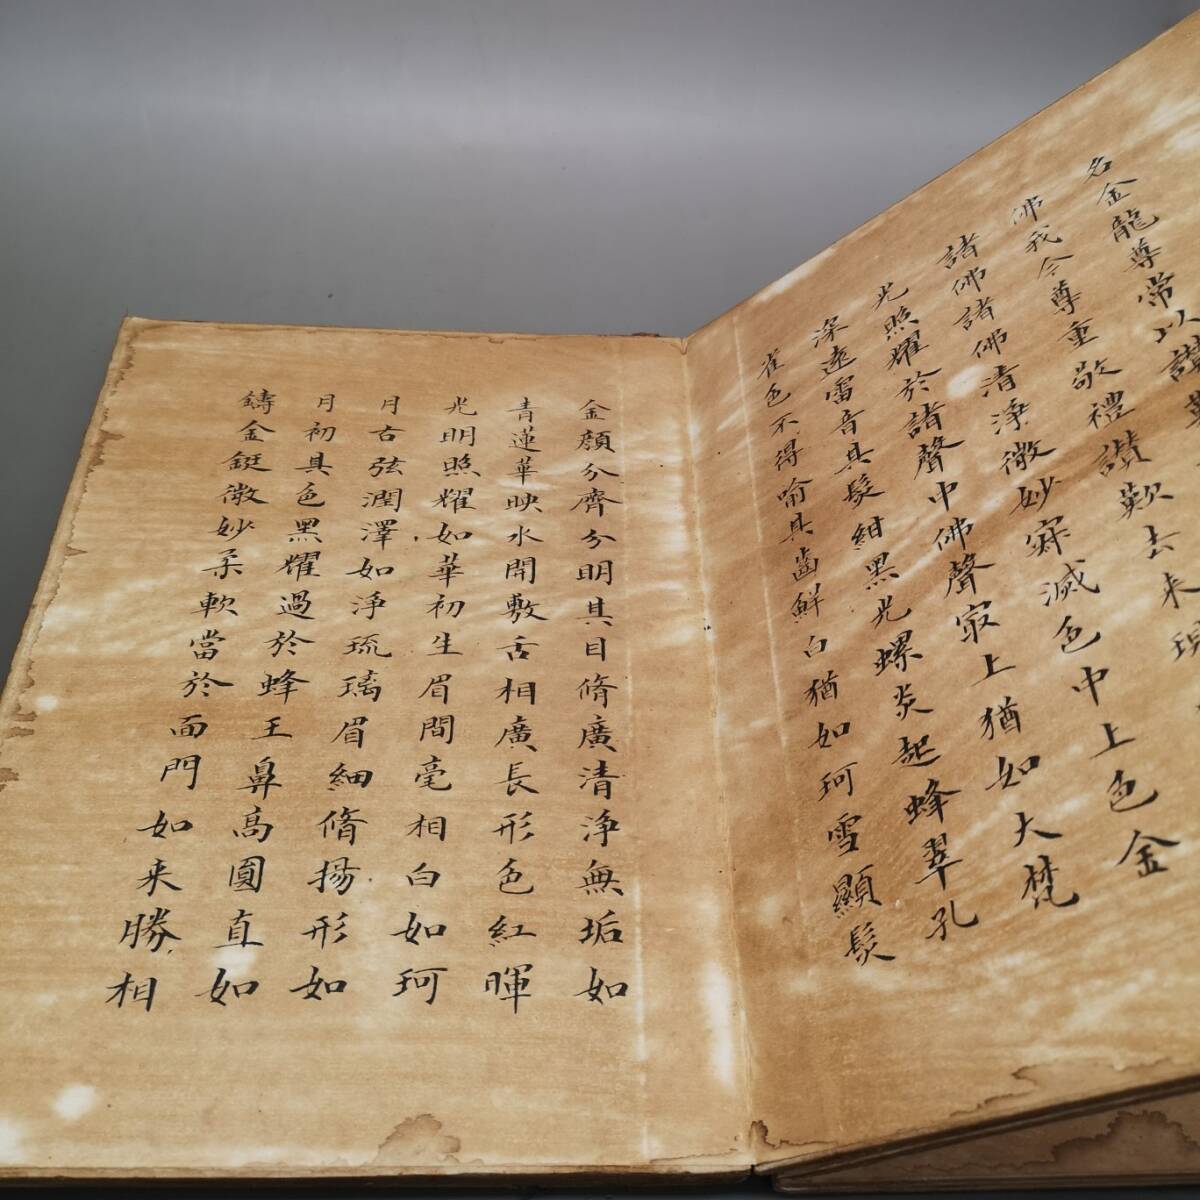 名金龍尊常以讚
佛我今尊重敬禮讚歎去来現
諸佛諸佛清淨微妙寂滅色中上色金
光照耀於諸聲中佛聲㝡上猶如大梵
深遠雷音其髮紺黑光螺炎起蜂翠孔
雀色不得喻其齒鮮白猶如珂雪顯髮
金顏分齊分明其目脩廣清淨無垢如
青蓮華映水開敷舌相廣長形色紅暉
光明照耀如華初生眉間毫相白如珂
月古弦潤澤如淨琉璃眉細脩揚形如
月初其色黑耀過於蜂王鼻高圓直如
鑄金鋌微妙柔軟當於面門如来勝相